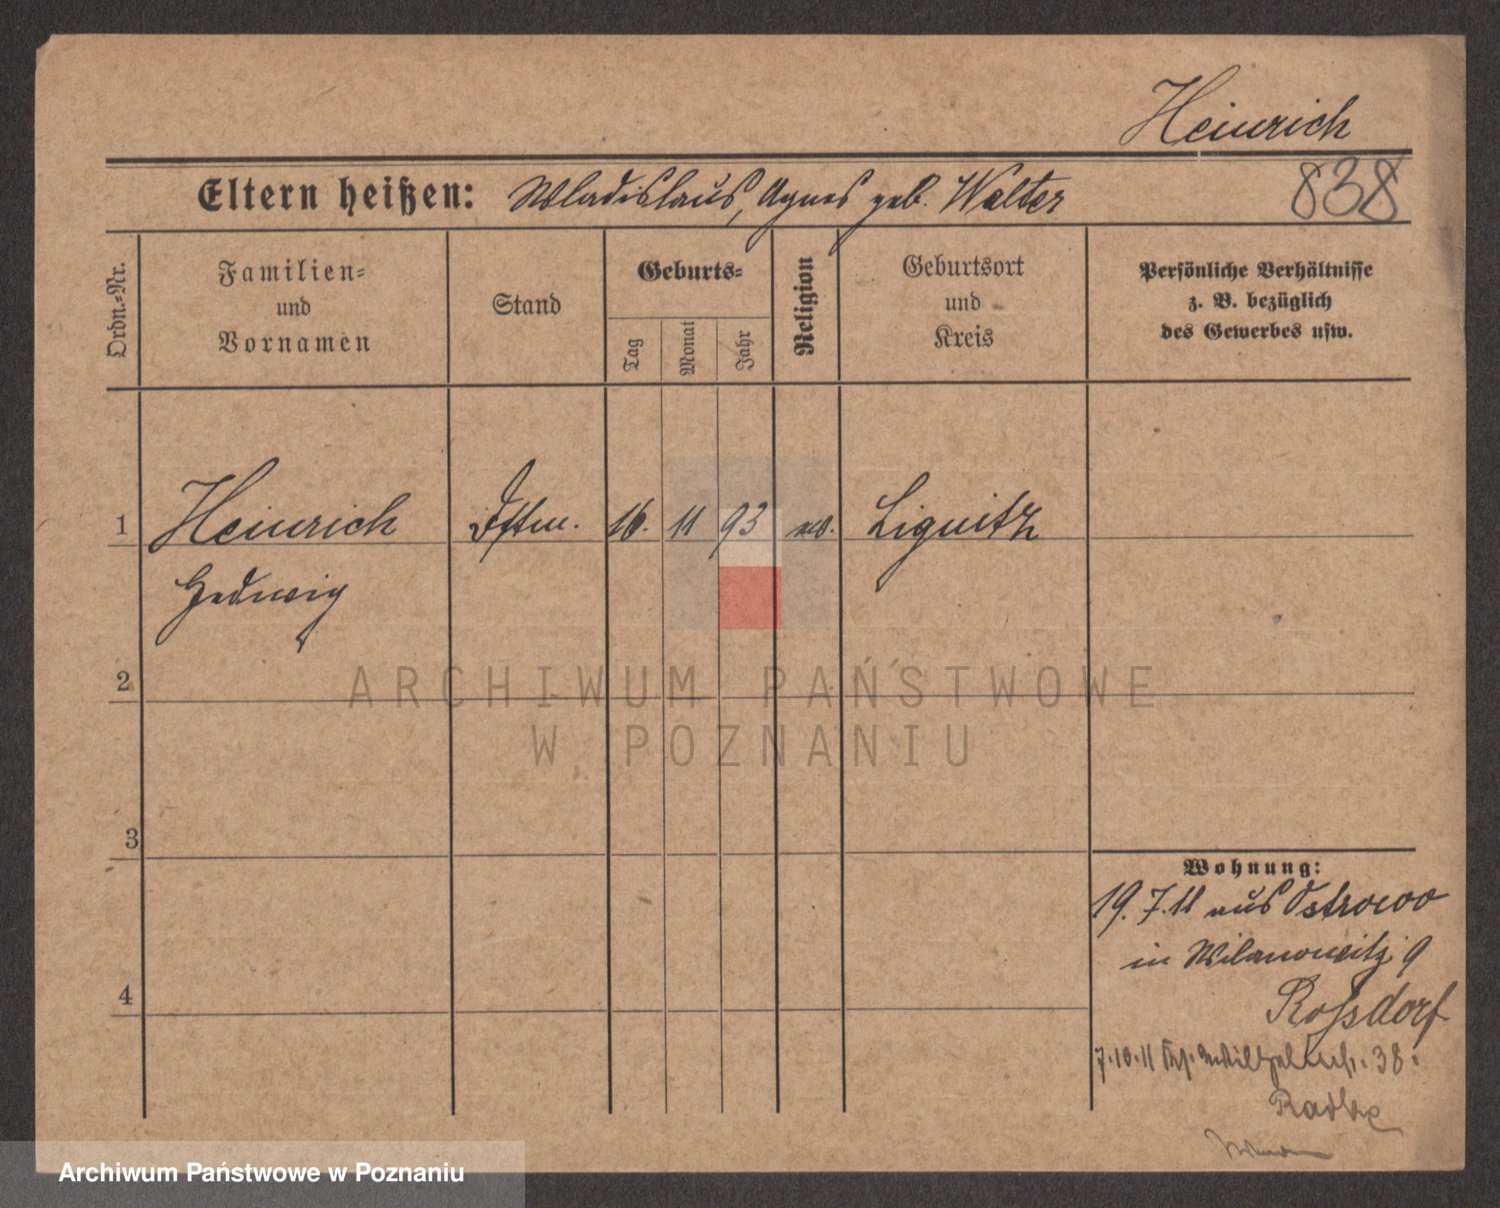 Heinrich
Eltern heißen: Wladislaus, Agnes geb. Walter
838
Ordn.-Nr.
Familien-
und
Vornamen
Stand
Geburts-
Tag
Monat
Jahr
Religion
Geburtsort
und
Kreis
Persönliche Verhältnisse
z. B. bezüglich
des Gewerbes usw.
1 Heinrich 16. 11 93 Liegnitz
Hedwig
2
3
4
Wohnung:
19.7.11 aus Ostrowo
in Wilamowitz 9
Rossdorf
7.10.11 38.
Radtke
ARCHIWUM PAŃSTWOWE
W POZNANIU
Archiwum Państwowe w Poznaniu